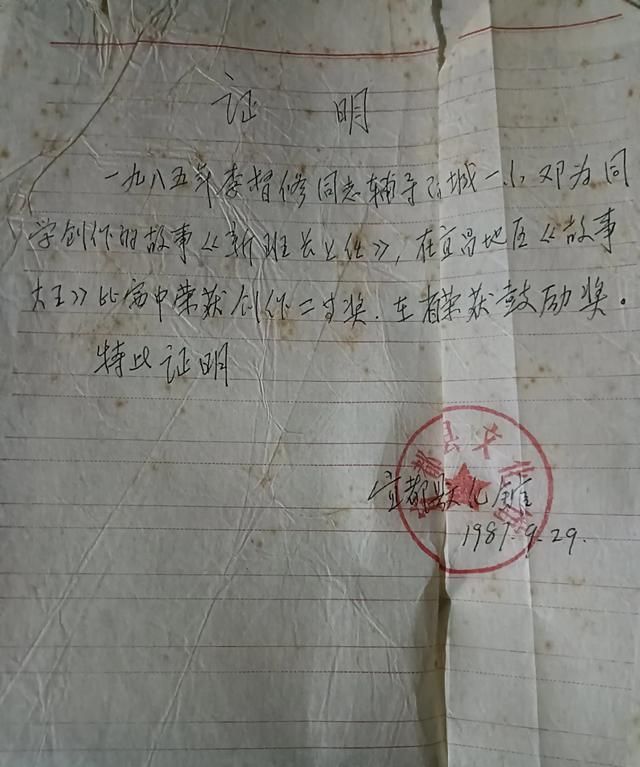 证 明
一九八五年李督修同志辅导陆城一小邓为同
学创作的故事《新班长上任》,在宜昌地区《故事
大王》比赛中荣获创作二等奖.在省荣获鼓励奖。
特此证明
宜都县文化馆
1987.9.29.